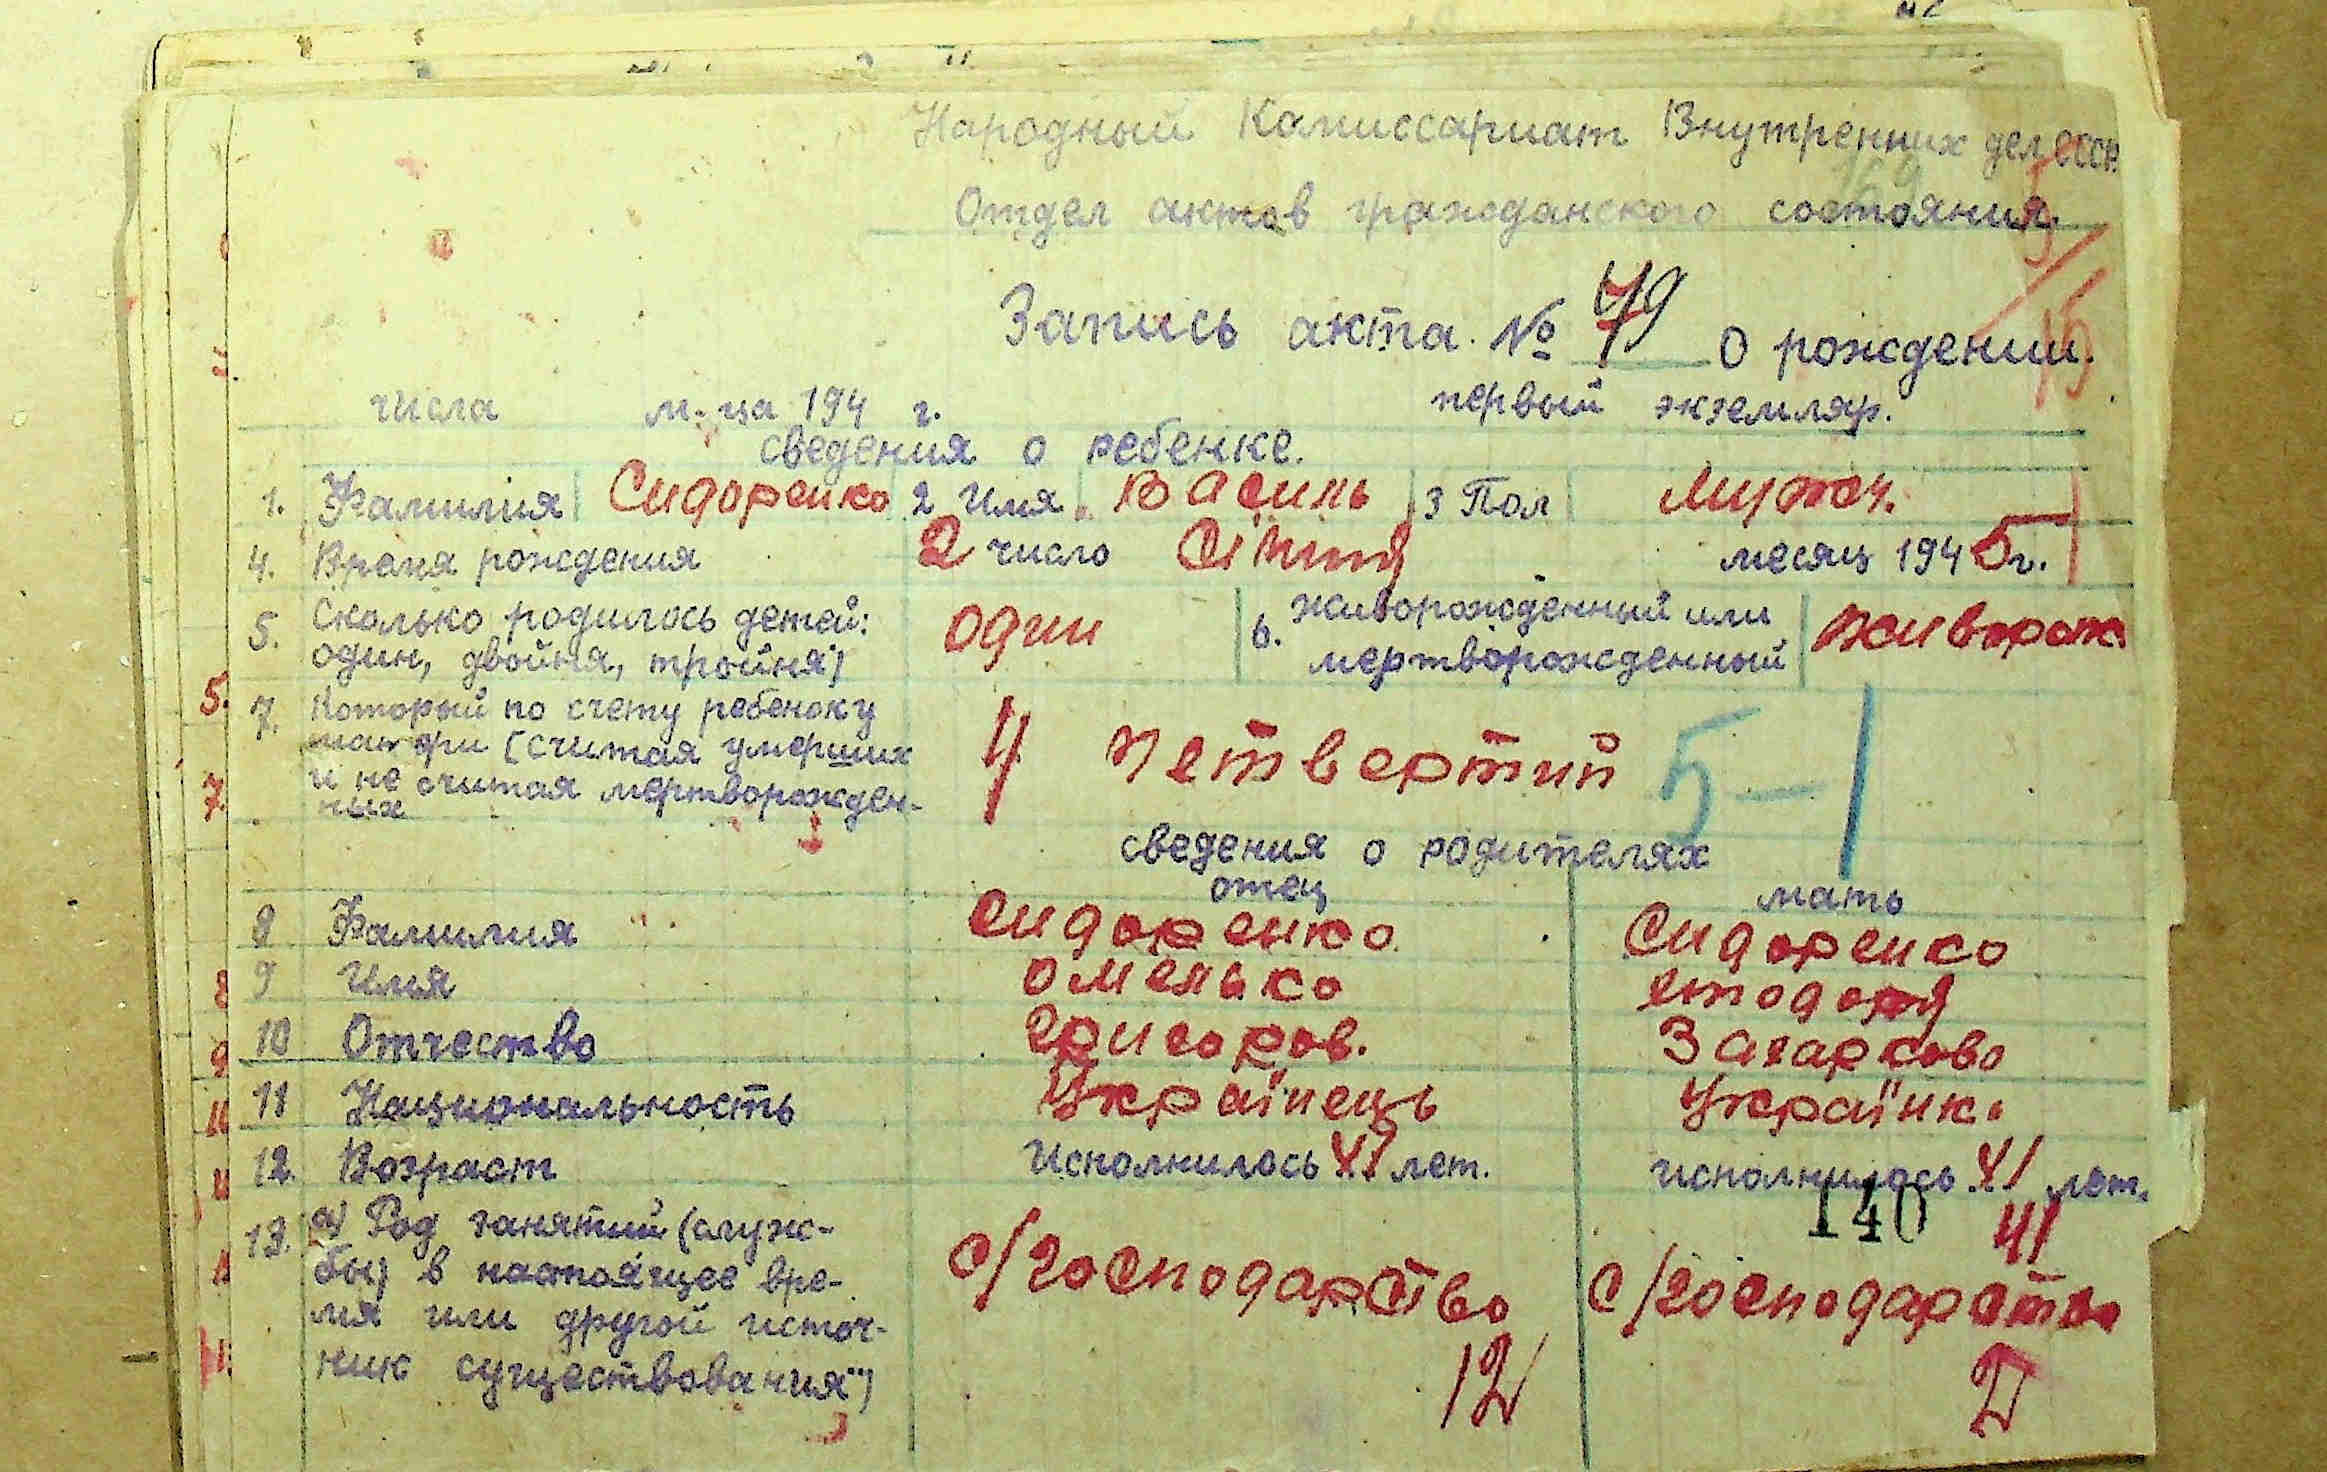 Народный Комиссариат Внутренних дел СССР
Отдел актов гражданского состояния.
Запись акта № 79 О рождении.
числа м-ца 194 г. первый экземляр.
сведения о ребенке.
1. Фамилия Сидоренко 2 Имя Василь 3 Пол мужоч.
4. Время рождения 2 число Січня месяц 1945 г.
5. Сколько родилось детей: один, двойня, тройня) один
6. живорожденный или мертворожденный живорож
7. Который по счету ребенок у
матери (считая умерших
и не считая мертворожден-
ных
4 четвертий 5-1
сведения о родителях
отец мать
8 Фамилия Сидоренко Сидоренко
9 Имя Омелько
10 Отчество Григоров. Захарково
11 Национальность Українець Українк.
12. Возраст Исполнилось 41 лет. исполнилось 41 лет.
140 41
13. а) Род занятий (служ-
бы) в настоящее вре-
мя или другой источ-
ник существования")
с/господарство с/господарство
12